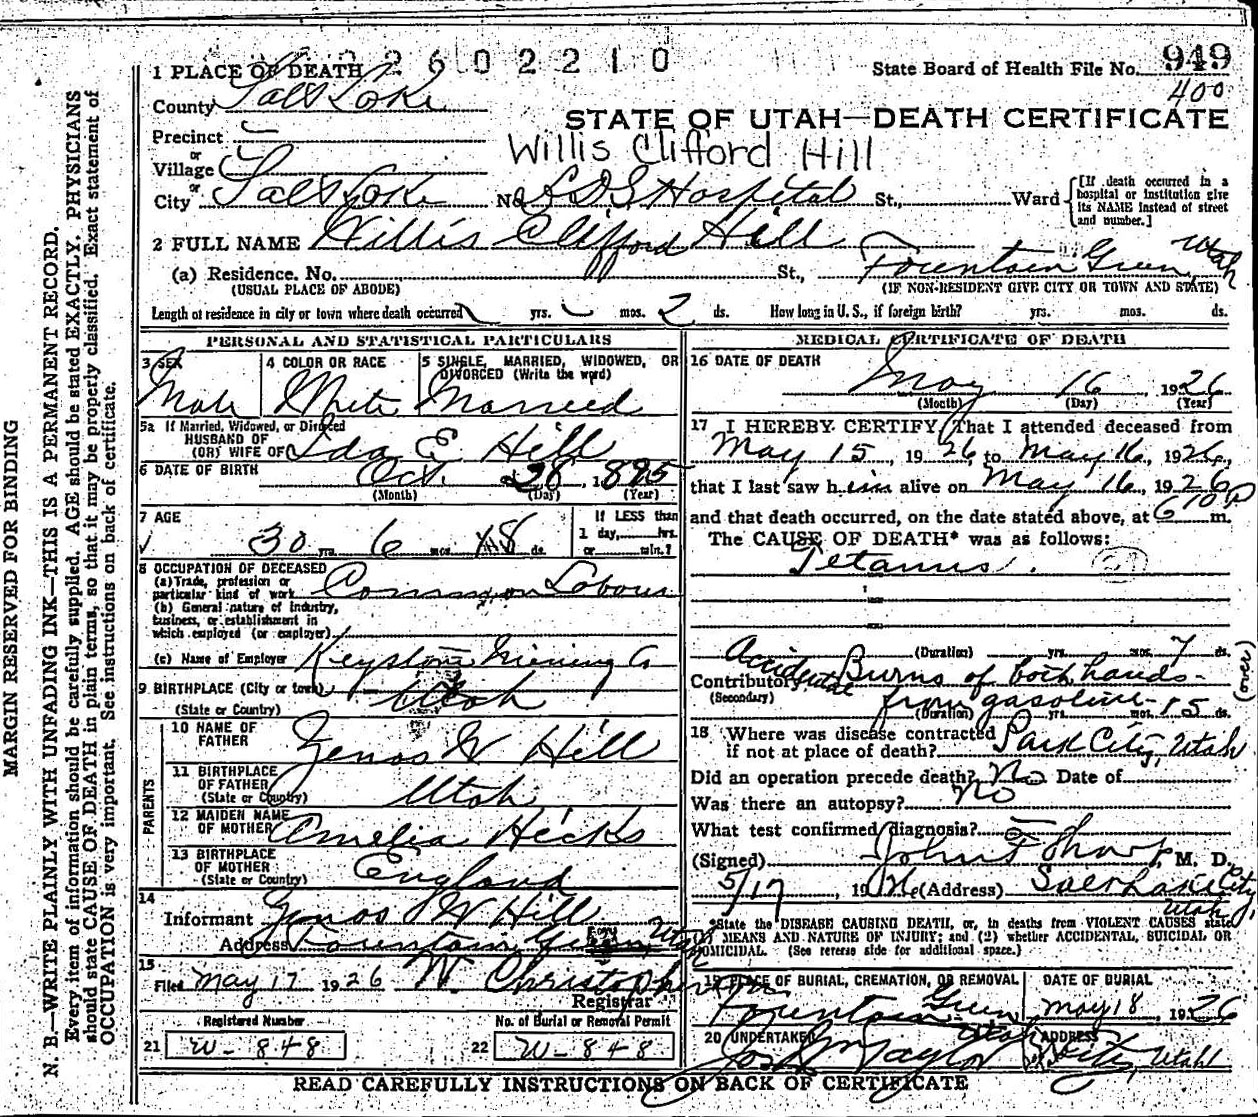 2602210
1 PLACE OF DEATH
State Board of Health File No. 949
400
County Salt Lake
STATE OF UTAH—DEATH CERTIFICATE
Precinct
or
Willis Clifford Hill
Village
or
City Salt Lake No. L D S Hospital St., Ward [If death occurred in a hospital or institution give its NAME instead of street and number.]
2 FULL NAME Willis Clifford Hill
(a) Residence. No. St., Fountain Green, Utah
(USUAL PLACE OF ABODE) (IF NON-RESIDENT GIVE CITY OR TOWN AND STATE)
Length of residence in city or town where death occurred yrs. mos. 2 ds. How long in U. S., if foreign birth? yrs. mos. ds.
PERSONAL AND STATISTICAL PARTICULARS
3 SEX
Male
4 COLOR OR RACE
White
5 SINGLE, MARRIED, WIDOWED, OR
DIVORCED (Write the word)
Married
5a If Married, Widowed, or Divorced
HUSBAND OF
(OR) WIFE OF Ida E Hill
6 DATE OF BIRTH Oct. 28 1895
(Month) (Day) (Year)
7 AGE
30 yrs. 6 mos. 18 ds.
If LESS than
1 day, hrs.
or min.?
8 OCCUPATION OF DECEASED
(a) Trade, profession or
particular kind of work Common Labour
(b) General nature of industry,
business, or establishment in
which employed (or employer)
(c) Name of Employer Keystone Mining Co
9 BIRTHPLACE (City or town)
(State or Country) Utah
PARENTS
10 NAME OF
FATHER Zenos W Hill
11 BIRTHPLACE
OF FATHER
(State or Country) Utah
12 MAIDEN NAME
OF MOTHER Amelia Hicks
13 BIRTHPLACE
OF MOTHER
(State or Country) England
14
Informant Zenos W Hill
Address Fountain Green, Utah
15
Filed May 17 1926 W. Christopherson
Registrar
Registered Number
21 W-848
No. of Burial or Removal Permit
22 W-848
MEDICAL CERTIFICATE OF DEATH
16 DATE OF DEATH
May 16 1926
(Month) (Day) (Year)
17 I HEREBY CERTIFY, That I attended deceased from
May 15, 1926, to May 16, 1926,
that I last saw him alive on May 16, 1926
and that death occurred, on the date stated above, at 6 10 P m.
The CAUSE OF DEATH* was as follows:
Tetanus.
(Duration) yrs. mos. 7 ds.
Contributory Accidental Burns of both hands-
(Secondary) from gasoline-
(over)
(Duration) yrs. mos. 15 ds.
18 Where was disease contracted
if not at place of death? Park City, Utah
Did an operation precede death? No Date of
Was there an autopsy? No
What test confirmed diagnosis?
(Signed) John F Sharp, M. D.
5/17, 1926 (Address) Salt Lake City
Utah
*State the DISEASE CAUSING DEATH, or, in deaths from VIOLENT CAUSES state
(1) MEANS AND NATURE OF INJURY; and (2) whether ACCIDENTAL, SUICIDAL OR
HOMICIDAL. (See reverse side for additional space.)
19 PLACE OF BURIAL, CREMATION, OR REMOVAL
Fountain Green
Utah
DATE OF BURIAL
May 18, 1926
20 UNDERTAKER
Jos Wm Taylor
ADDRESS
City, Utah
READ CAREFULLY INSTRUCTIONS ON BACK OF CERTIFICATE
MARGIN RESERVED FOR BINDING
N. B.—WRITE PLAINLY WITH UNFADING INK—THIS IS A PERMANENT RECORD.
Every item of information should be carefully supplied. AGE should be stated EXACTLY. PHYSICIANS
should state CAUSE OF DEATH in plain terms, so that it may be properly classified. Exact statement of
OCCUPATION is very important. See instructions on back of certificate.